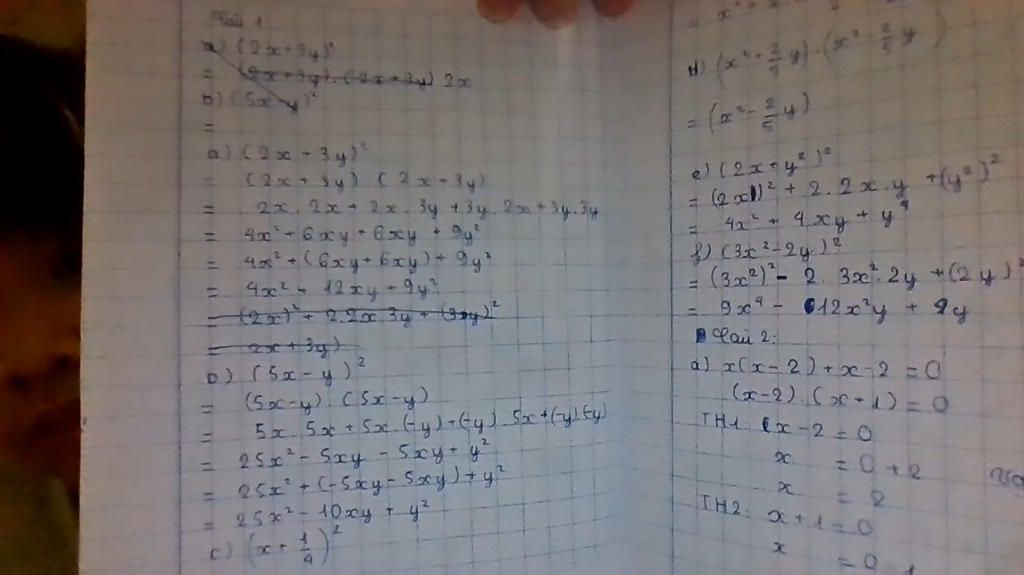 Bài 1
a) (2x+3y)²
= (2x+3y).(2x+3y) 2x
b) (5x-y)²
=
a) (2x + 3y)²
= (2x + 3y) . (2x+3y)
= 2x . 2x + 2x . 3y + 3y . 2x + 3y.3y
= 4x² + 6xy + 6xy + 9y²
= 4x² + (6xy + 6xy) + 9y²
= 4x² + 12xy + 9y²
= (2x)² + 2.2x.3y + (3y)²
= 2x + 3y)
b) (5x - y)²
= (5x-y) . (5x-y)
= 5x . 5x + 5x . (-y) + (-y) . 5x + (-y).(-y)
= 25x² - 5xy - 5xy + y²
= 25x² + (-5xy - 5xy) + y²
= 25x² - 10xy + y²
c) (x + 1/4)²
= x² +
d) (x² + 2/5 y) . (x² - 2/5 y)
= (x² - 2/5 y)
e) (2x + y²)²
= (2x)² + 2 . 2x . y + (y²)²
= 4x² + 4xy + y⁴
f) (3x² - 2y)²
= (3x²)² - 2 . 3x² . 2y + (2y)²
= 9x⁴ - 12x²y + 2y
Bài 2:
a) x(x - 2) + x - 2 = 0
(x-2) . (x + 1) = 0
TH1: x - 2 = 0
x = 0 + 2
x = 2
TH2: x + 1 = 0
x = 0